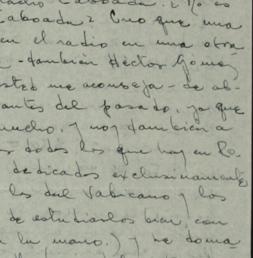 Taboada? Creo que una
en el radio en una obra
- también Héctor Gómez
usted me aconseja - de ab-
antes del pasado, ya que
mucho. y voy también a
todos los que hay en
dedicados exclusivamente
los del Vaticano y los
de estudiarlos bien, con
la mano.) y me doma-